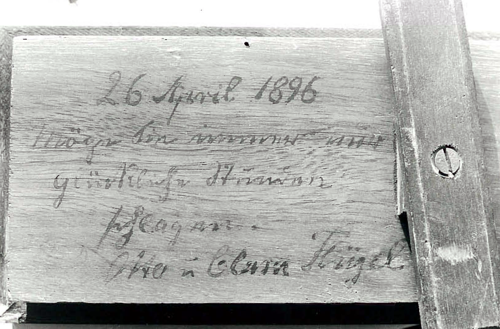 26 April 1896
Möge Sie immer nur
glückliche Stunden
schlagen.
Otto u Clara